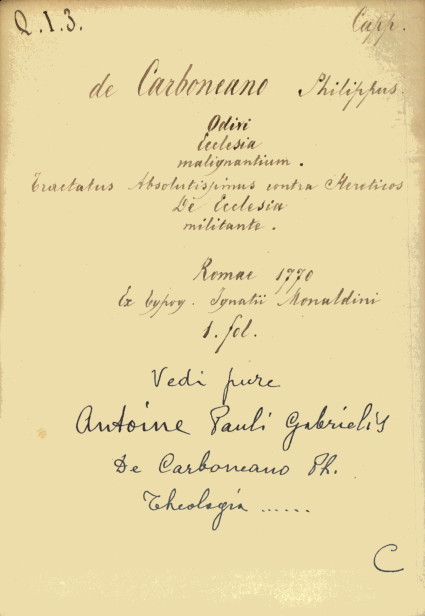 Q.I.3. Capp.
de Carboneano Philippus.
Odivi
Ecclesia
malignantium.
Tractatus Absolutissimus contra Hereticos
De Ecclesia
militante.
Romae 1770
Ex typog. Ignatii Monaldini
1. fol.
Vedi pure
Antoine Pauli Gabrielis
De Carboneano Ph.
Theologia ......
C